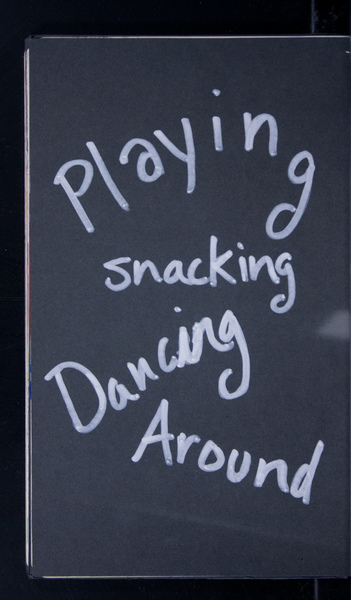 Playing
snacking
Dancing
Around